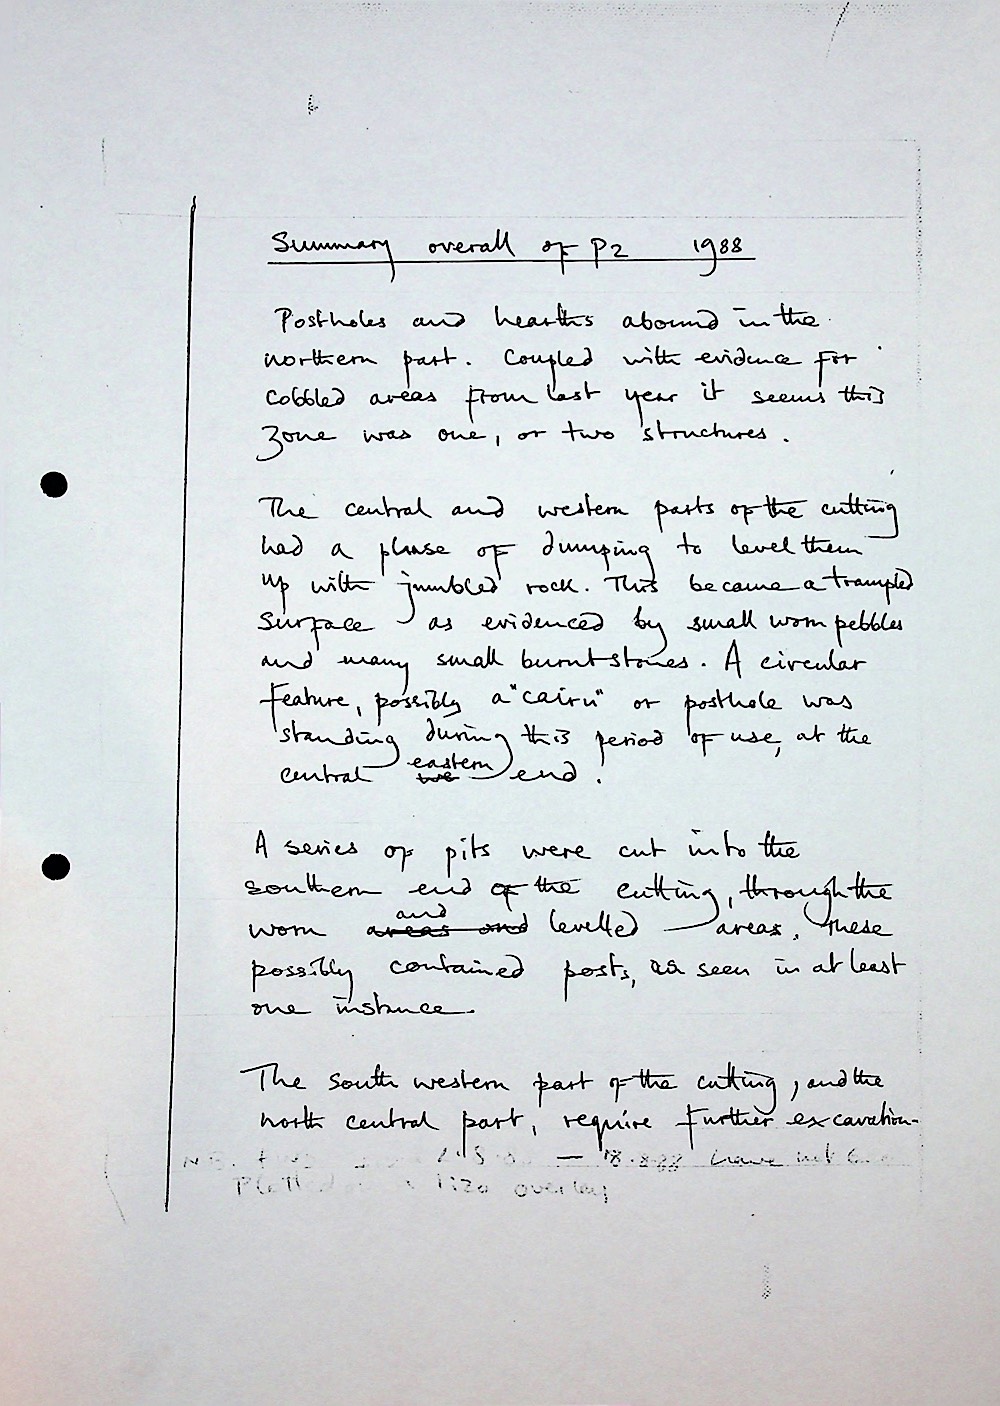 Summary overall of P2 1988
Postholes and hearths abound in the
northern part. Coupled with evidence for
cobbled areas from last year it seems this
zone was one, or two structures.
The central and western parts of the cutting
had a phase of dumping to level them
up with jumbled rock. This became a trampled
surface as evidenced by small worn pebbles
and many small burnt stones. A circular
feature, possibly a "cairn" or posthole was
standing during this period of use, at the
central we eastern end.
A series of pits were cut into the
southern end of the cutting, through the
worn areas and and levelled areas, these
possibly contained posts, as seen in at least
one instance.
The south western part of the cutting, and the
north central part, require further excavation-
N.B. — 18.8.88 have not
overlay